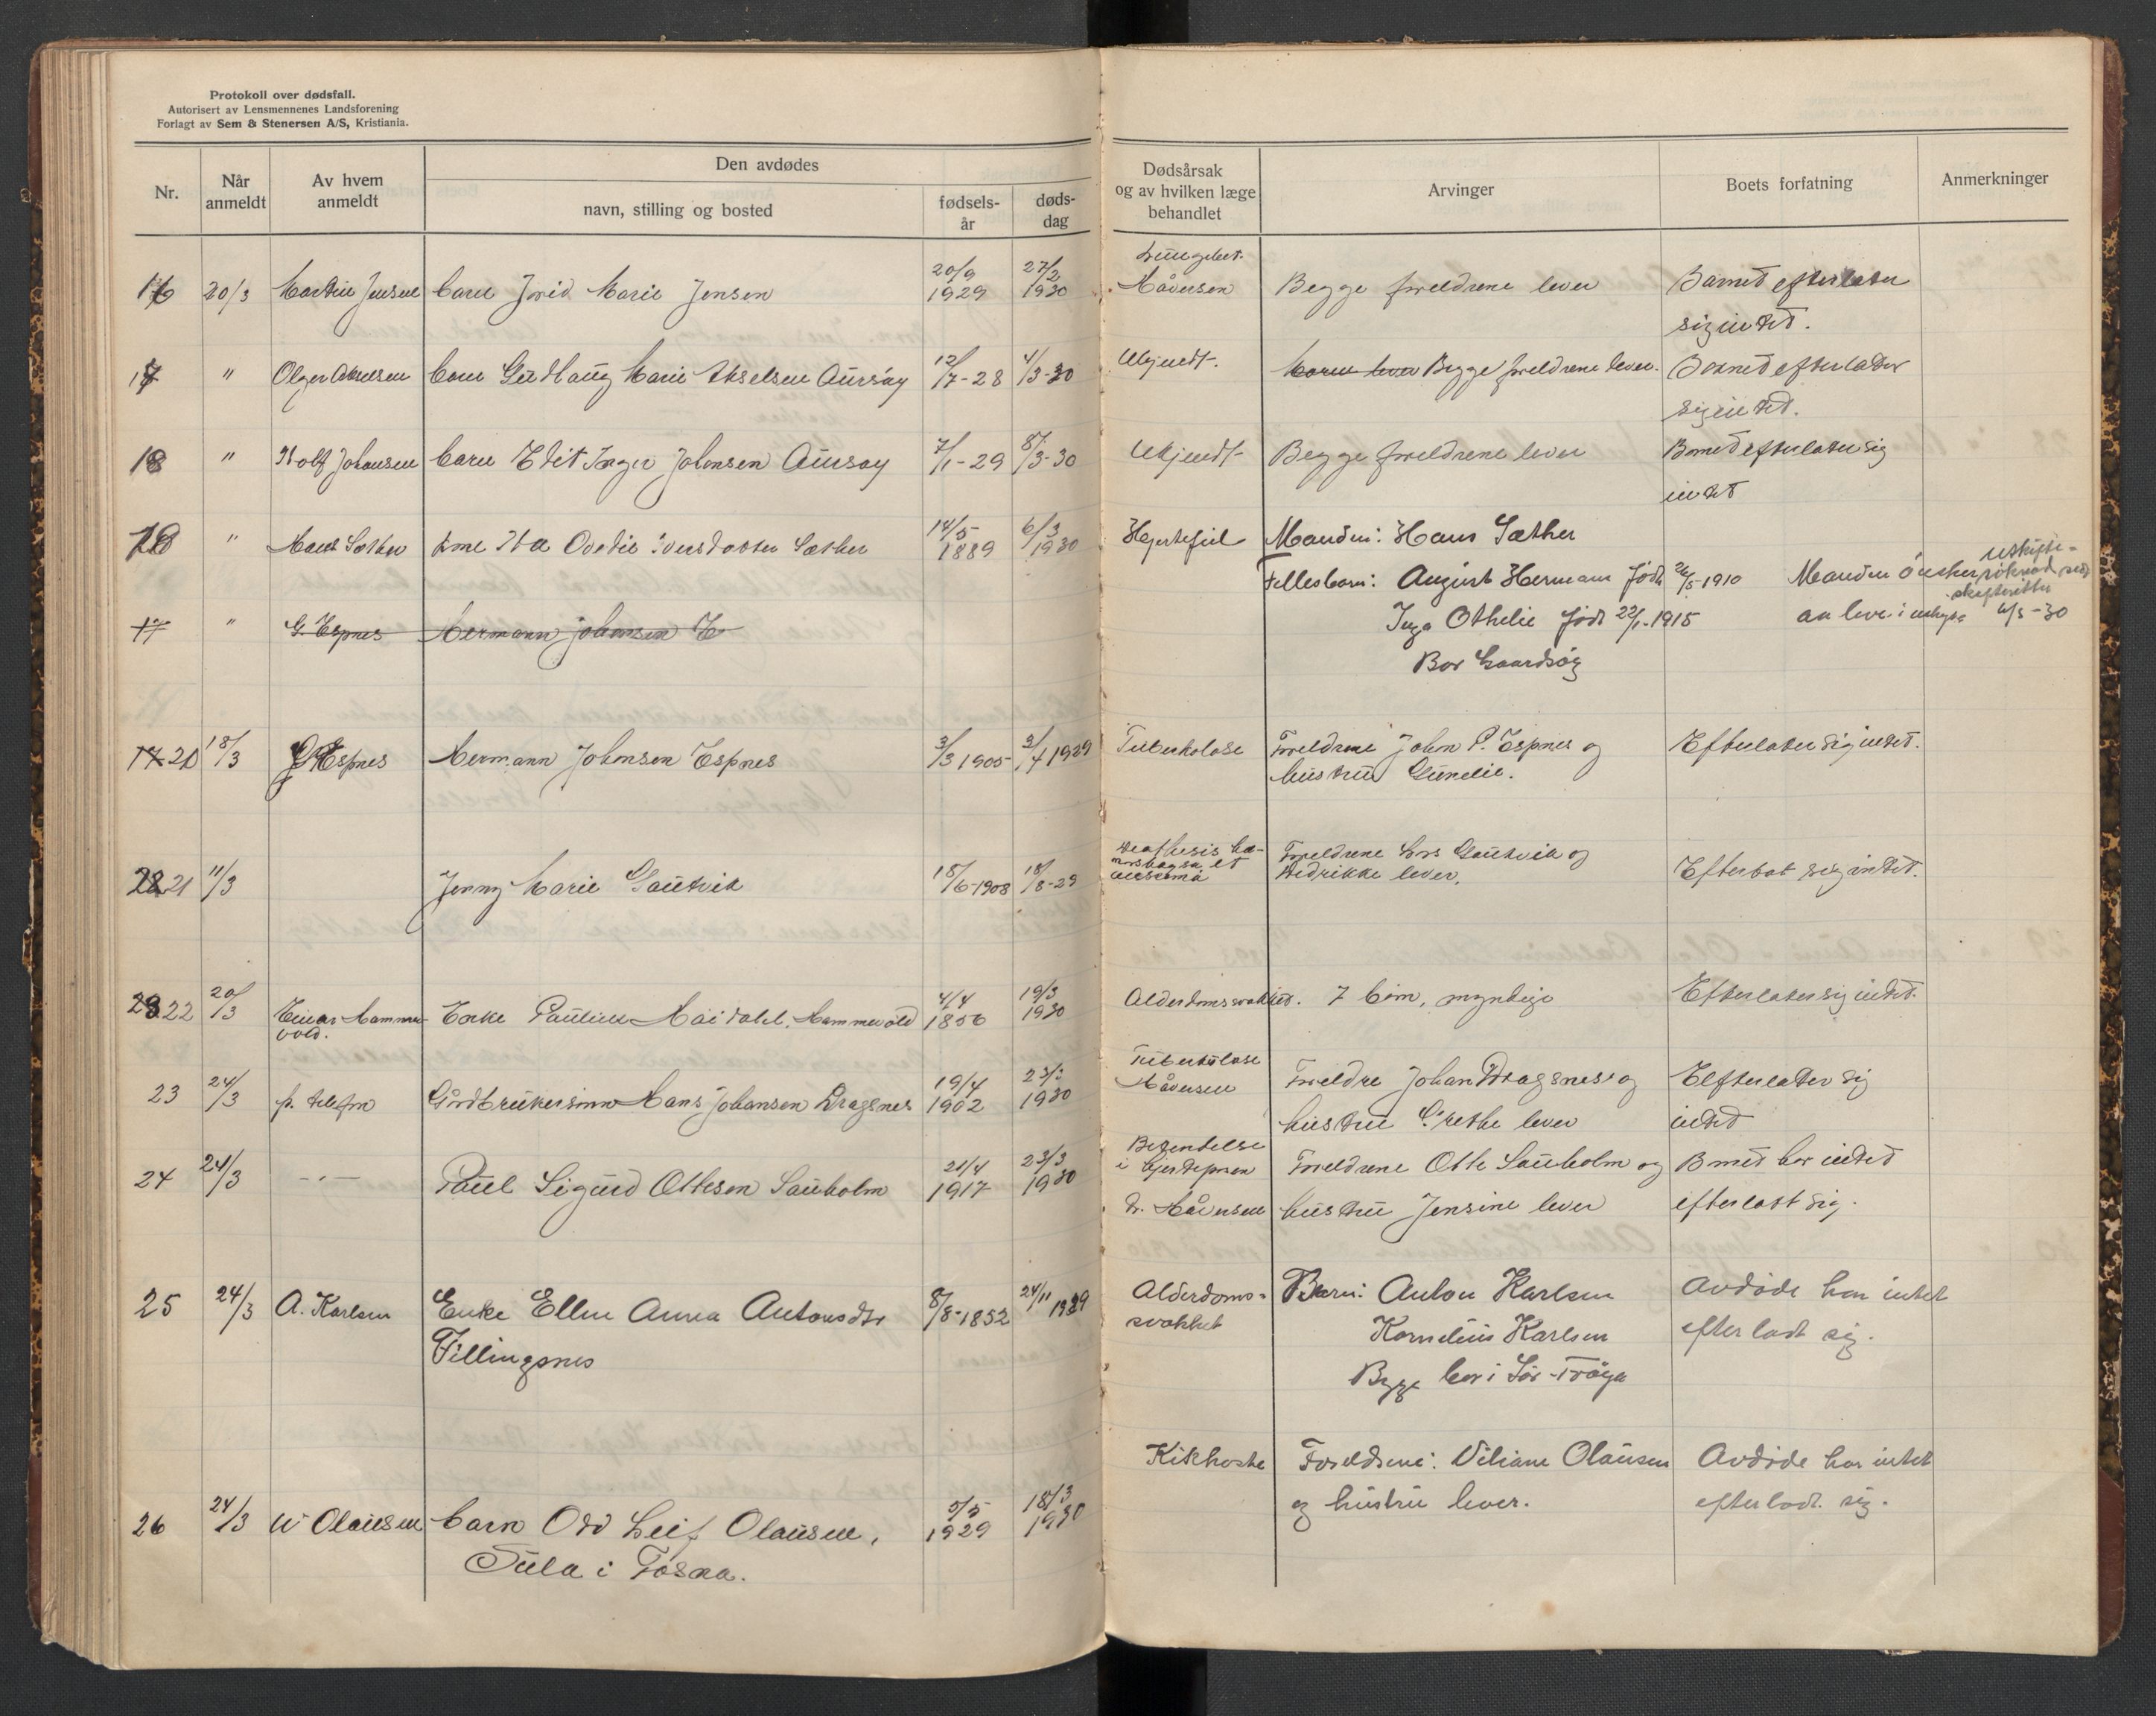 Protokoll over dødsfall.
Autorisert av Lensmennenes Landsforening
Forlagt av Sem & Stenersen A/S, Kristiania.
Nr.
Når anmeldt
Av hvem anmeldt
Den avdødes
navn, stilling og bosted
fødsels-år
døds-dag
Dødsårsak og av hvilken læge behandlet
Arvinger
Boets forfatning
Anmerkninger
16 20/3 Martin Jensen barn Jorid Marie Jensen 20/9 1929 27/2 1930 Lungebet. Håversen Begge foreldrene lever Barnet efterlater
sig intet.
17 " Olger Akselsen barn Gudlaug Marie Akselsen Aursøy 12/7-28 4/3-30 Ukjendt. Begge foreldrene lever. Barnet efterlater
sig intet.
18 " Rolf Johansen barn Edit Inger Johansen Aursøy 7/1-29 8/3-30 Ukjendt Begge foreldrene lever Barnet efterlater sig
intet
19 " Hans Sæther kone Ovedie Iversdatter Sæther 14/5 1889 6/3 1930 Hjertefeil Manden: Hans Sæther
Fellesbarn: August Hermann født 26/5-1910 Manden ønsker
Inga Othelie født 22/1-1915 å leve i uskifte 4/3-30
Bor Gaardsøy
17 " G. Espnes Hermann Johansen E
17 20 18/3 G Espnes Hermann Johansen Espnes 3/3 1905 3/4 1929 Tuberkulose Foreldrene John P. Espnes og
hustru Gunelie. Efterlater sig intet.
21 11/3 Jenny Marie Gautvik 18/6-1908 18/8-29 Foreldrene Lars Gautvik og
Hedrikke lever. Efterlot sig intet.
22 20/3 Einar Hammervold. Enke Pauline Hammervold 4/4 1856 19/3 1930 Alderdomssvakhet. 7 barn, myndige Efterlater sig intet.
23 24/3 p. telefon Gårdbrukersønn Hans Johansen Dragsnes 19/4 1902 23/3 1930 Tuberkulose Håversen Foreldre Johan Dragsnes og
hustru Grethe lever Efterlater sig
intet
24 24/3 -"- Paul Sigurd Ottesen Sauholm 21/4 1917 23/3 1930 Betendelse i hjerteposen
dr. Håversen Foreldrene Otte Sauholm og
hustru Jensine lever Barnet har intet
efterlatt sig.
25 24/3 A. Karlsen Enke Ellen Anna Antonsdtr
Fillingsnes 8/8-1852 24/11 1929 Alderdoms-
svakhet Barn: Anton Karlsen
Kornelius Karlsen
Begge bor i Sør-Frøya Avdøde har intet
efterladt sig.
26 24/3 W Olausen barn Odd Leif Olausen,
Sula i Frøya. 5/5 1929 18/3 1930 Kikhoste Foreldrene: Viliam Olausen
og hustru lever. Avdøde har intet
efterladt sig.